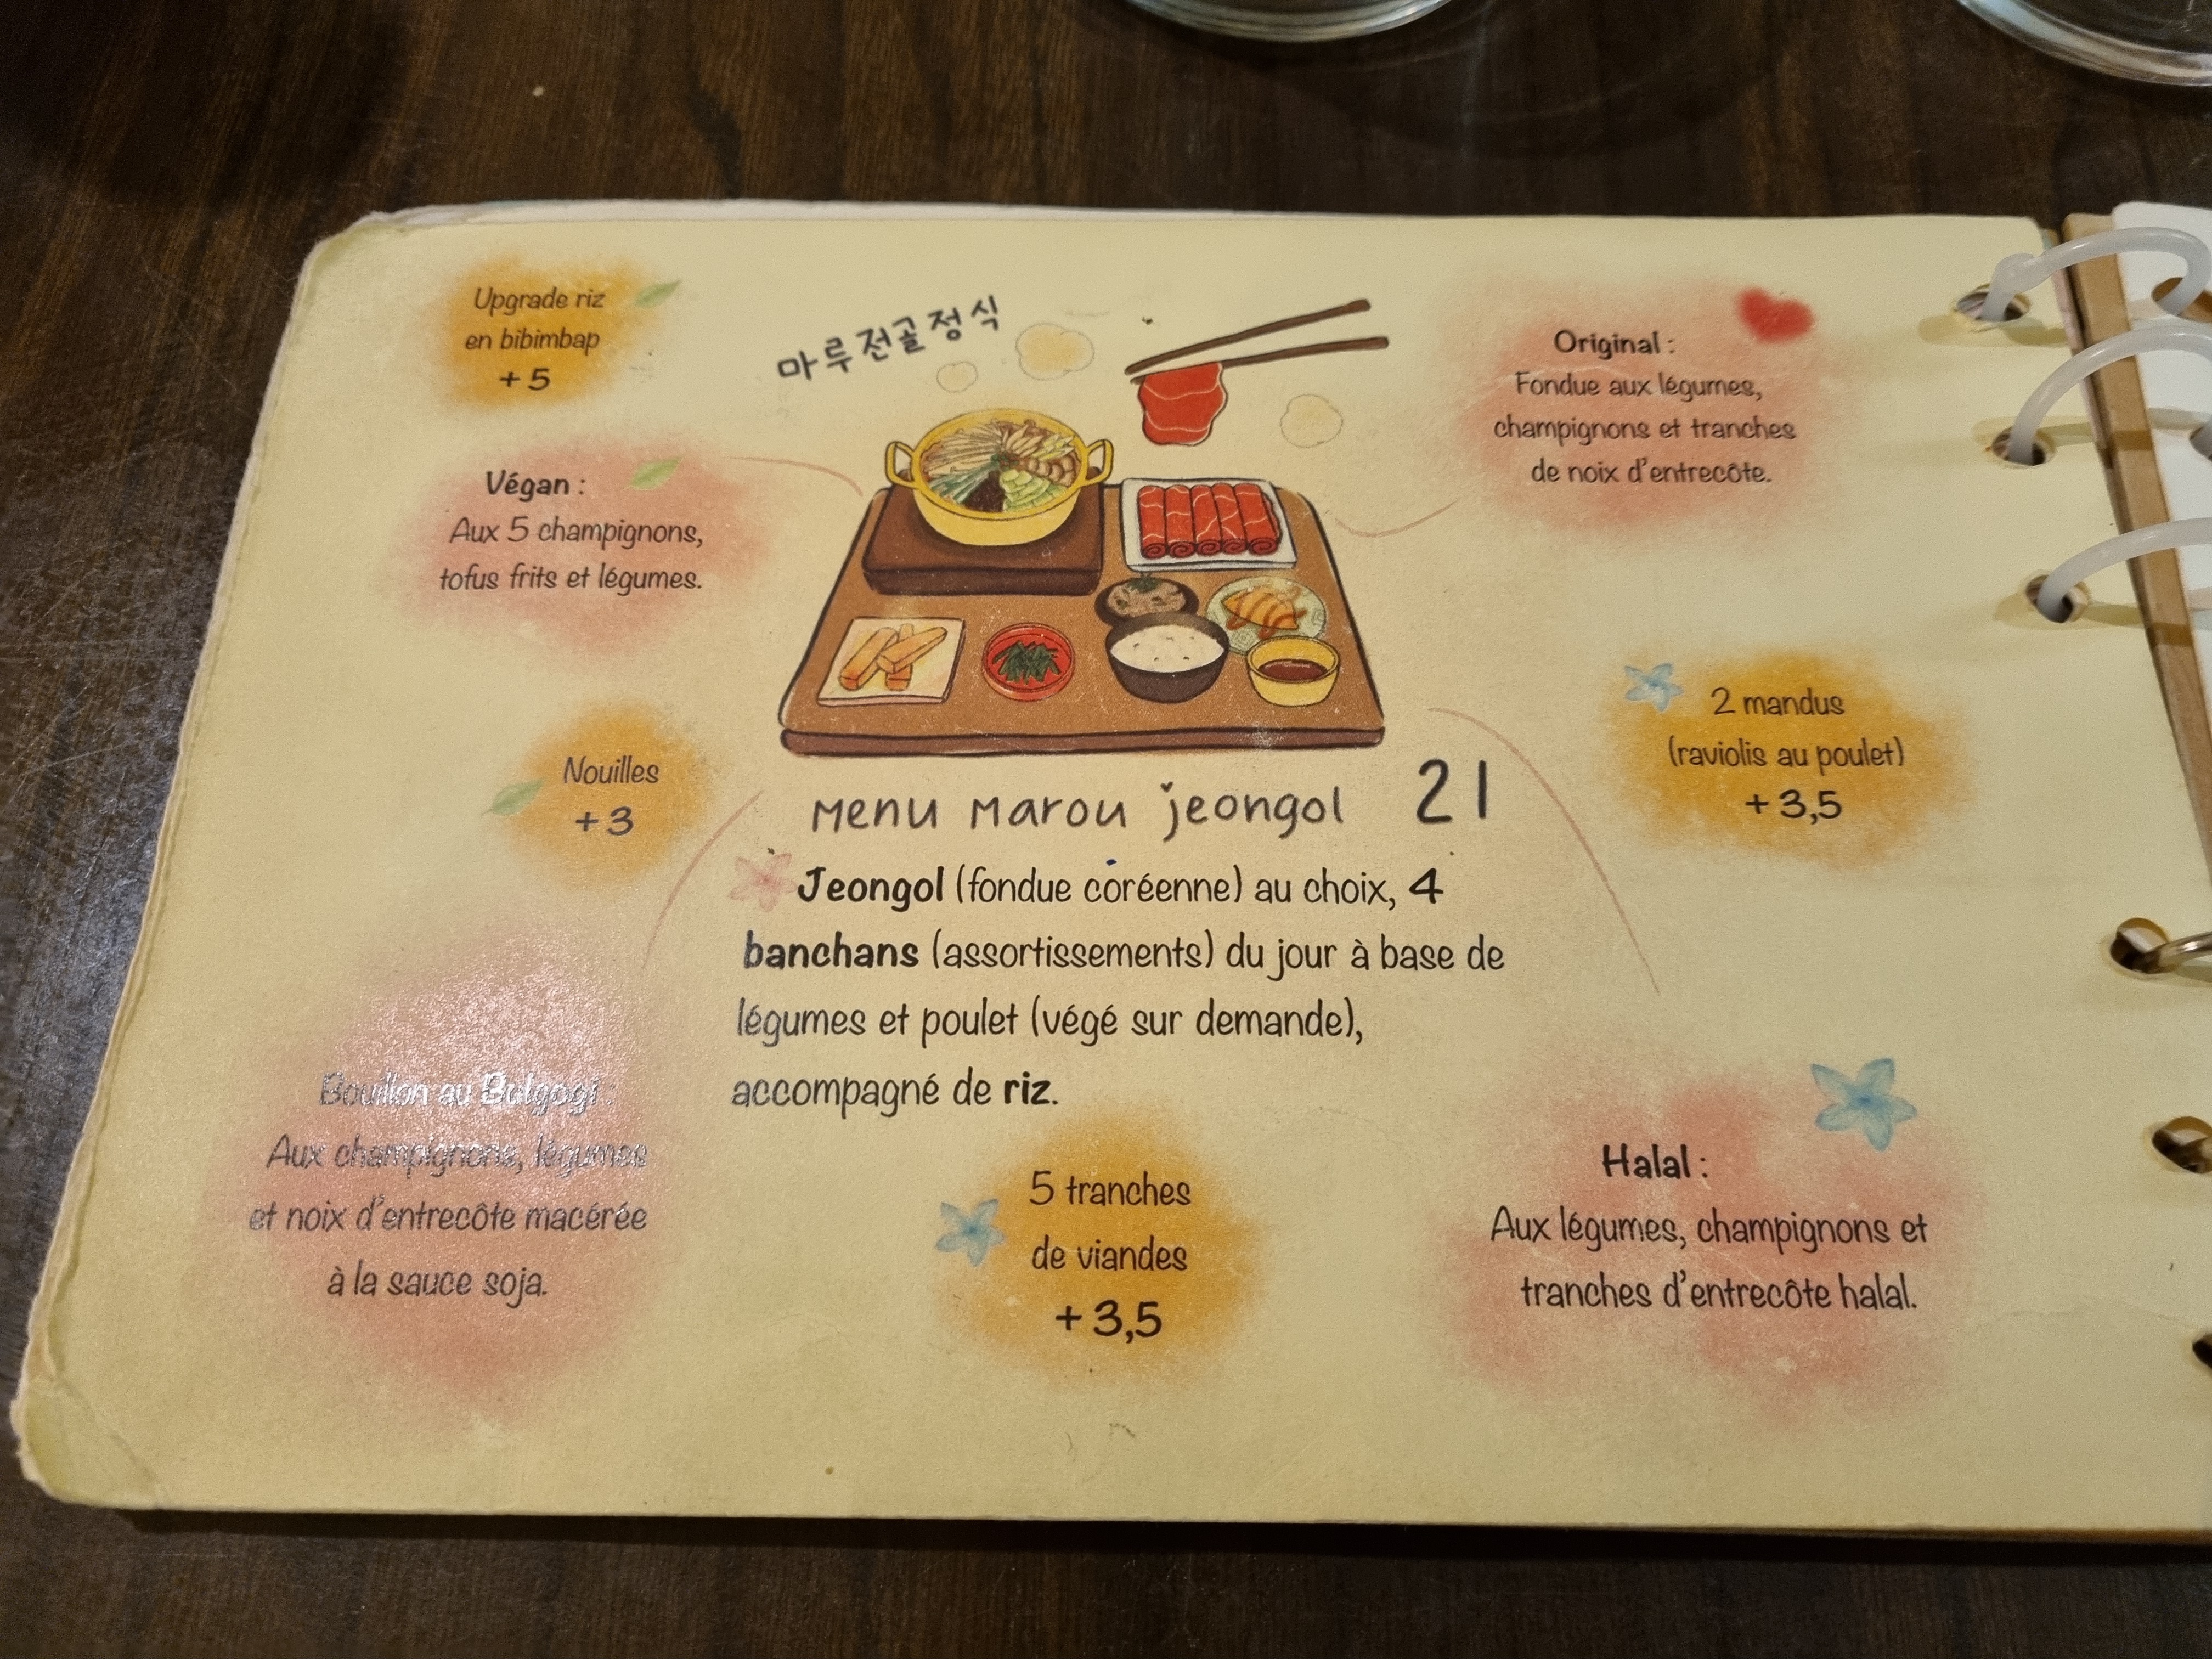 Upgrade riz
en bibimbap
+ 5
마루전골정식
Original :
Fondue aux légumes,
champignons et tranches
de noix d'entrecôte.
Végan :
Aux 5 champignons,
tofus frits et légumes.
Nouilles
+ 3
2 mandus
(raviolis au poulet)
+ 3,5
Menu Marou jeongol 21
Jeongol (fondue coréenne) au choix, 4
banchans (assortissements) du jour à base de
légumes et poulet (végé sur demande),
accompagné de riz.
Bouillon au Bulgogi :
Aux champignons, légumes
et noix d'entrecôte macérée
à la sauce soja.
5 tranches
de viandes
+ 3,5
Halal :
Aux légumes, champignons et
tranches d'entrecôte halal.